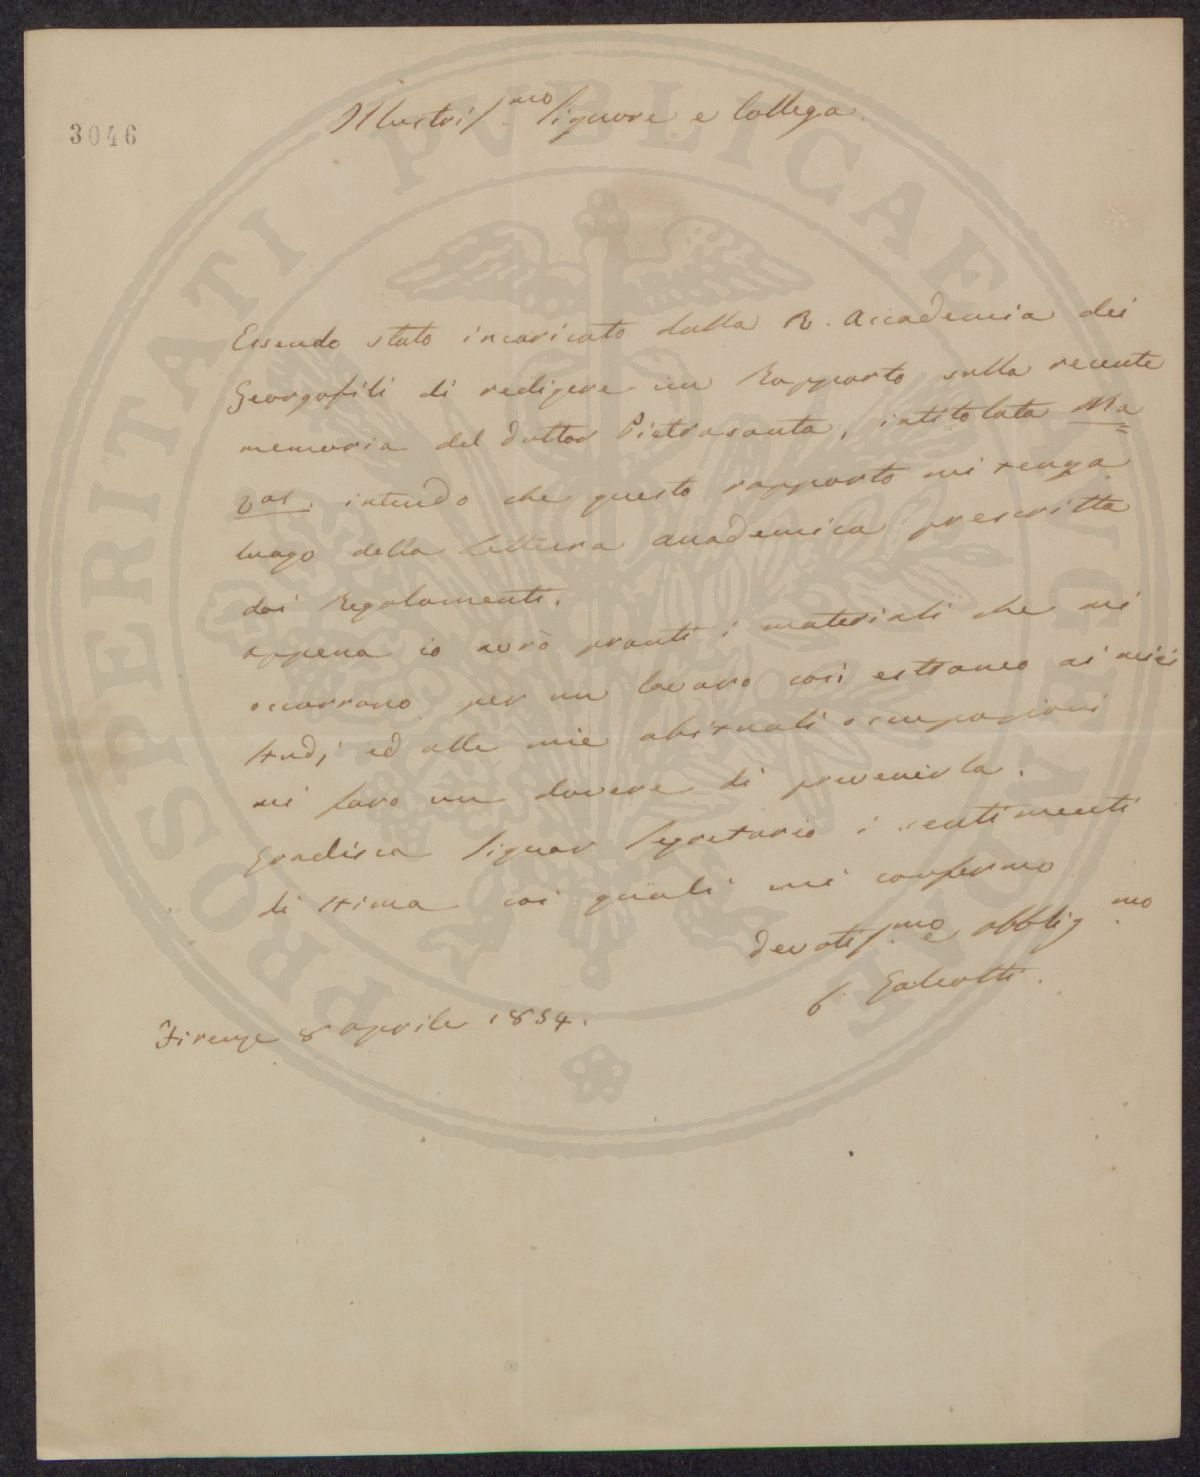 3046
Illustriss.mo Signore e Collega.
Essendo stato incaricato dalla R. Accademia dei
Georgofili di redigere un Rapporto sulla recente
memoria del Dottor Pietrasanta, intitolata Ma=
intendo che questo rapporto mi tenga
luogo della Lettura accademica prescritta
dai Regolamenti.
appena io avrò pronti i materiali che mi
occorrono per un lavoro così estraneo ai miei
studj ed alle mie abituali occupazioni
mi farò un dovere di prevenirla.
Gradisca Signor Segretario i sentimenti
di stima coi quali mi confermo
devotiss.mo e obblig.mo
Galeotti.
Firenze 8 aprile 1854.
PROSPERITATI PVBLICAE AVGENDAE